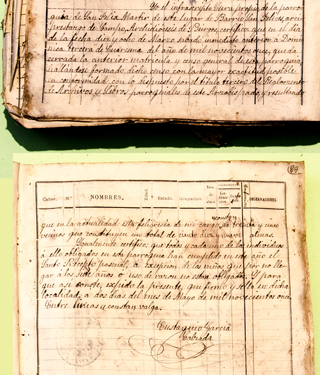 Yo el infrascripto Cura propio de la parro-
quia de San Felix Martir de este lugar de Barrio San Felices, arci-
prestazgo de Campo, Archidiócesis de Burgos, certifico que en el dia
de la fecha diez y ocho de Marzo sabado inmediato anterior a Domi-
nica tercera de Cuaresma del año de mil novecientos once, queda
cerrada la anterior matricula y censo general de esta parroquia
habiendose formado dicho censo con la mayor exactitud posible
y conformidad con lo dispuesto por el titulo tercero del Reglamento
de Archivos y Libros parroquiales de este Arzobispado y resultando
89
Calles. N.º NOMBRES. Edad. Estado. OBSERVACIONES.
que en la actualidad esta feligresia de mi cargo, de treinta y once
vecinos que constituyen un total de ciento diez y nueve almas.
Igualmente certifico: que todos y cada uno de los individuos
á ello obligados en esta parroquia han cumplido en este año el
Santo Precepto pascual, á excepcion de los niños que por no lle-
gar a los siete años o uso de razon no estan obligados. Y para
que asi conste, expido la presente, que firmo y sello en dicha
localidad, a dos dias del mes de Mayo de mil novecientos once
Entre lineas y constan valga.
Eustaquio Garcia